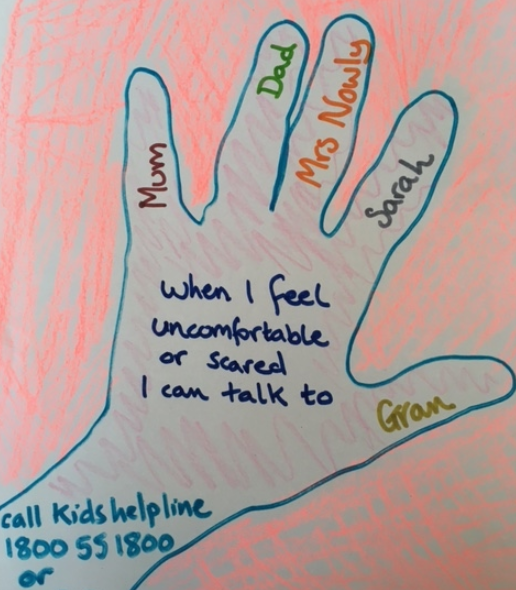 Mum
Dad
Mrs Nowly
Sarah
When I feel
uncomfortable
or scared
I can talk to
Gran
call Kids helpline
1800 55 1800
or